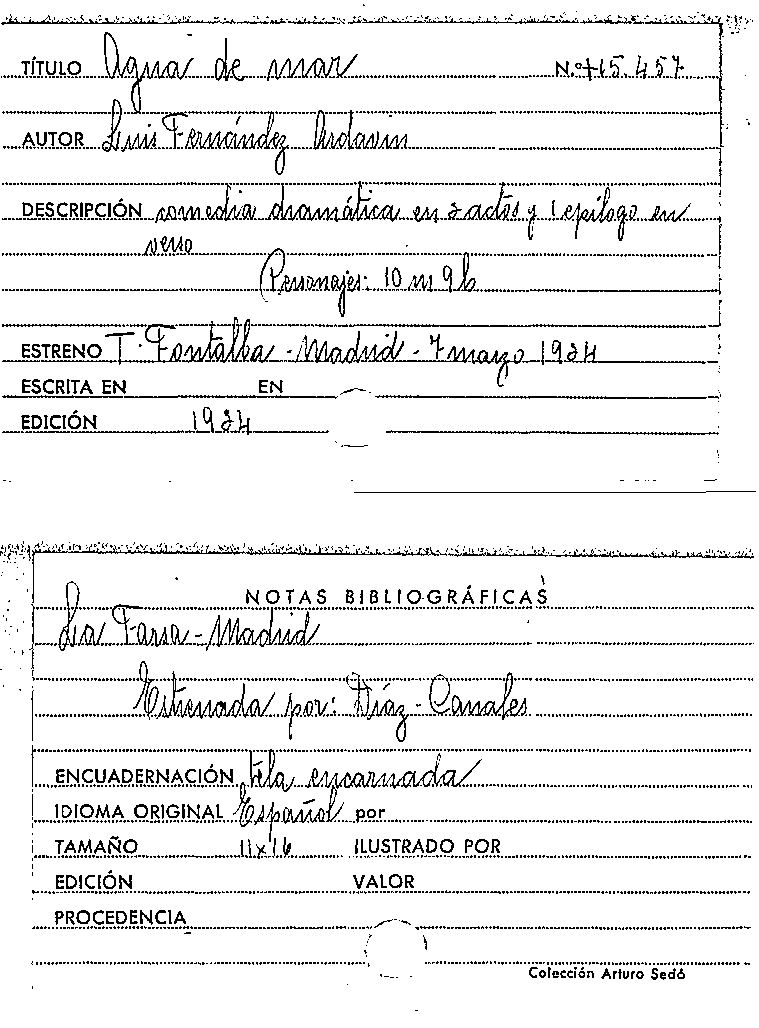 TÍTULO Agua de mar N.º 15.457
AUTOR Luis Fernández Ardavín
DESCRIPCIÓN comedia dramática en 2 actos y 1 epílogo en
verso
(Personajes: 10 m 9 h
ESTRENO T. Fontalba - Madrid - 7 marzo 1924
ESCRITA EN EN
EDICIÓN 1924
NOTAS BIBLIOGRÁFICAS
La Farsa - Madrid
Estrenada por: Díaz - Canales
ENCUADERNACIÓN tela encarnada
IDIOMA ORIGINAL Español por
TAMAÑO 11x16 ILUSTRADO POR
EDICIÓN VALOR
PROCEDENCIA
Colección Arturo Sedó